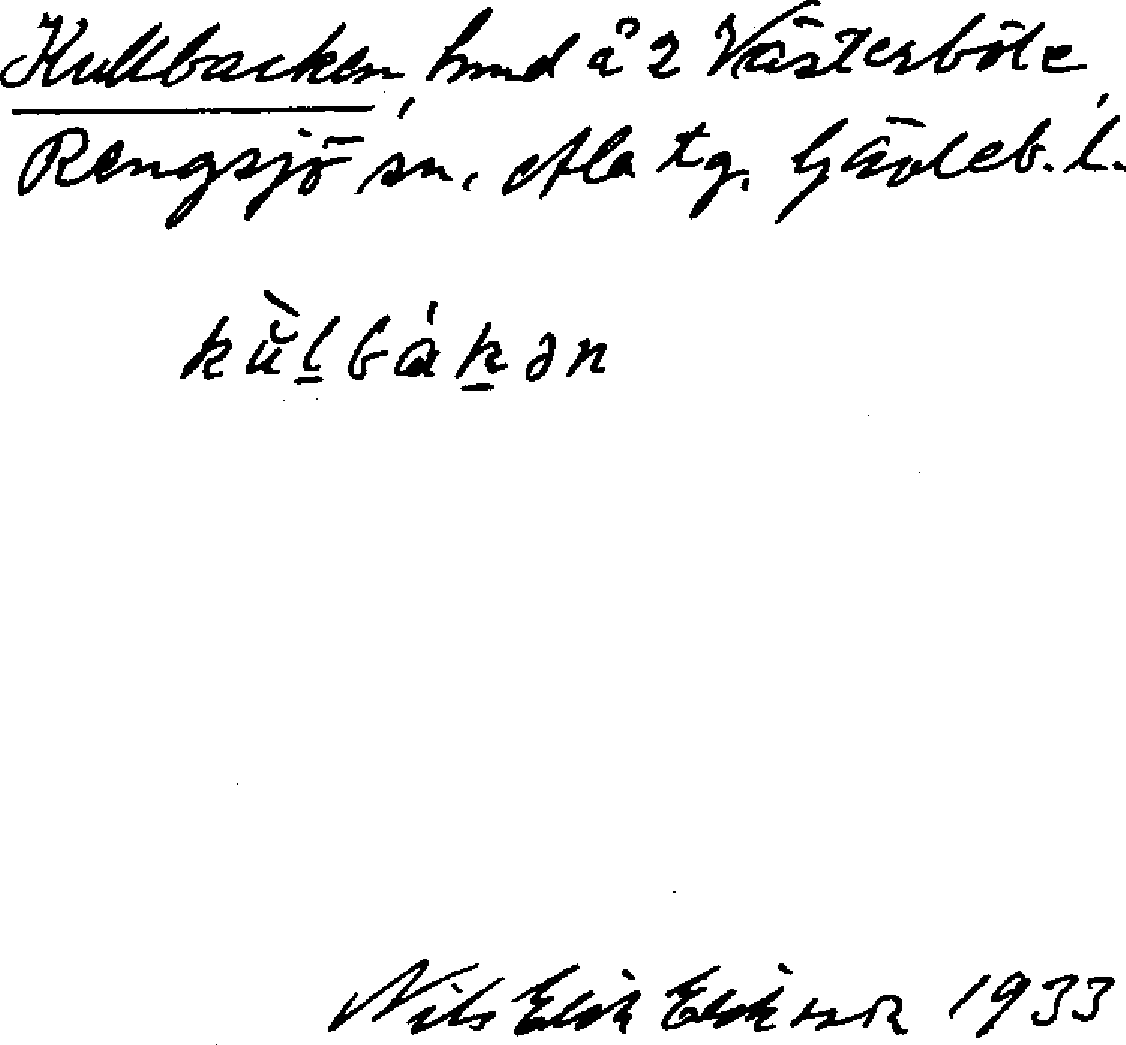 Kullbacken, hmd å 2 Västerböle,
Rengsjö sn, Ala tg. Gävleb. l.
kŭ̀l̲bák̲ən
Nils Erik Eriksson 1933